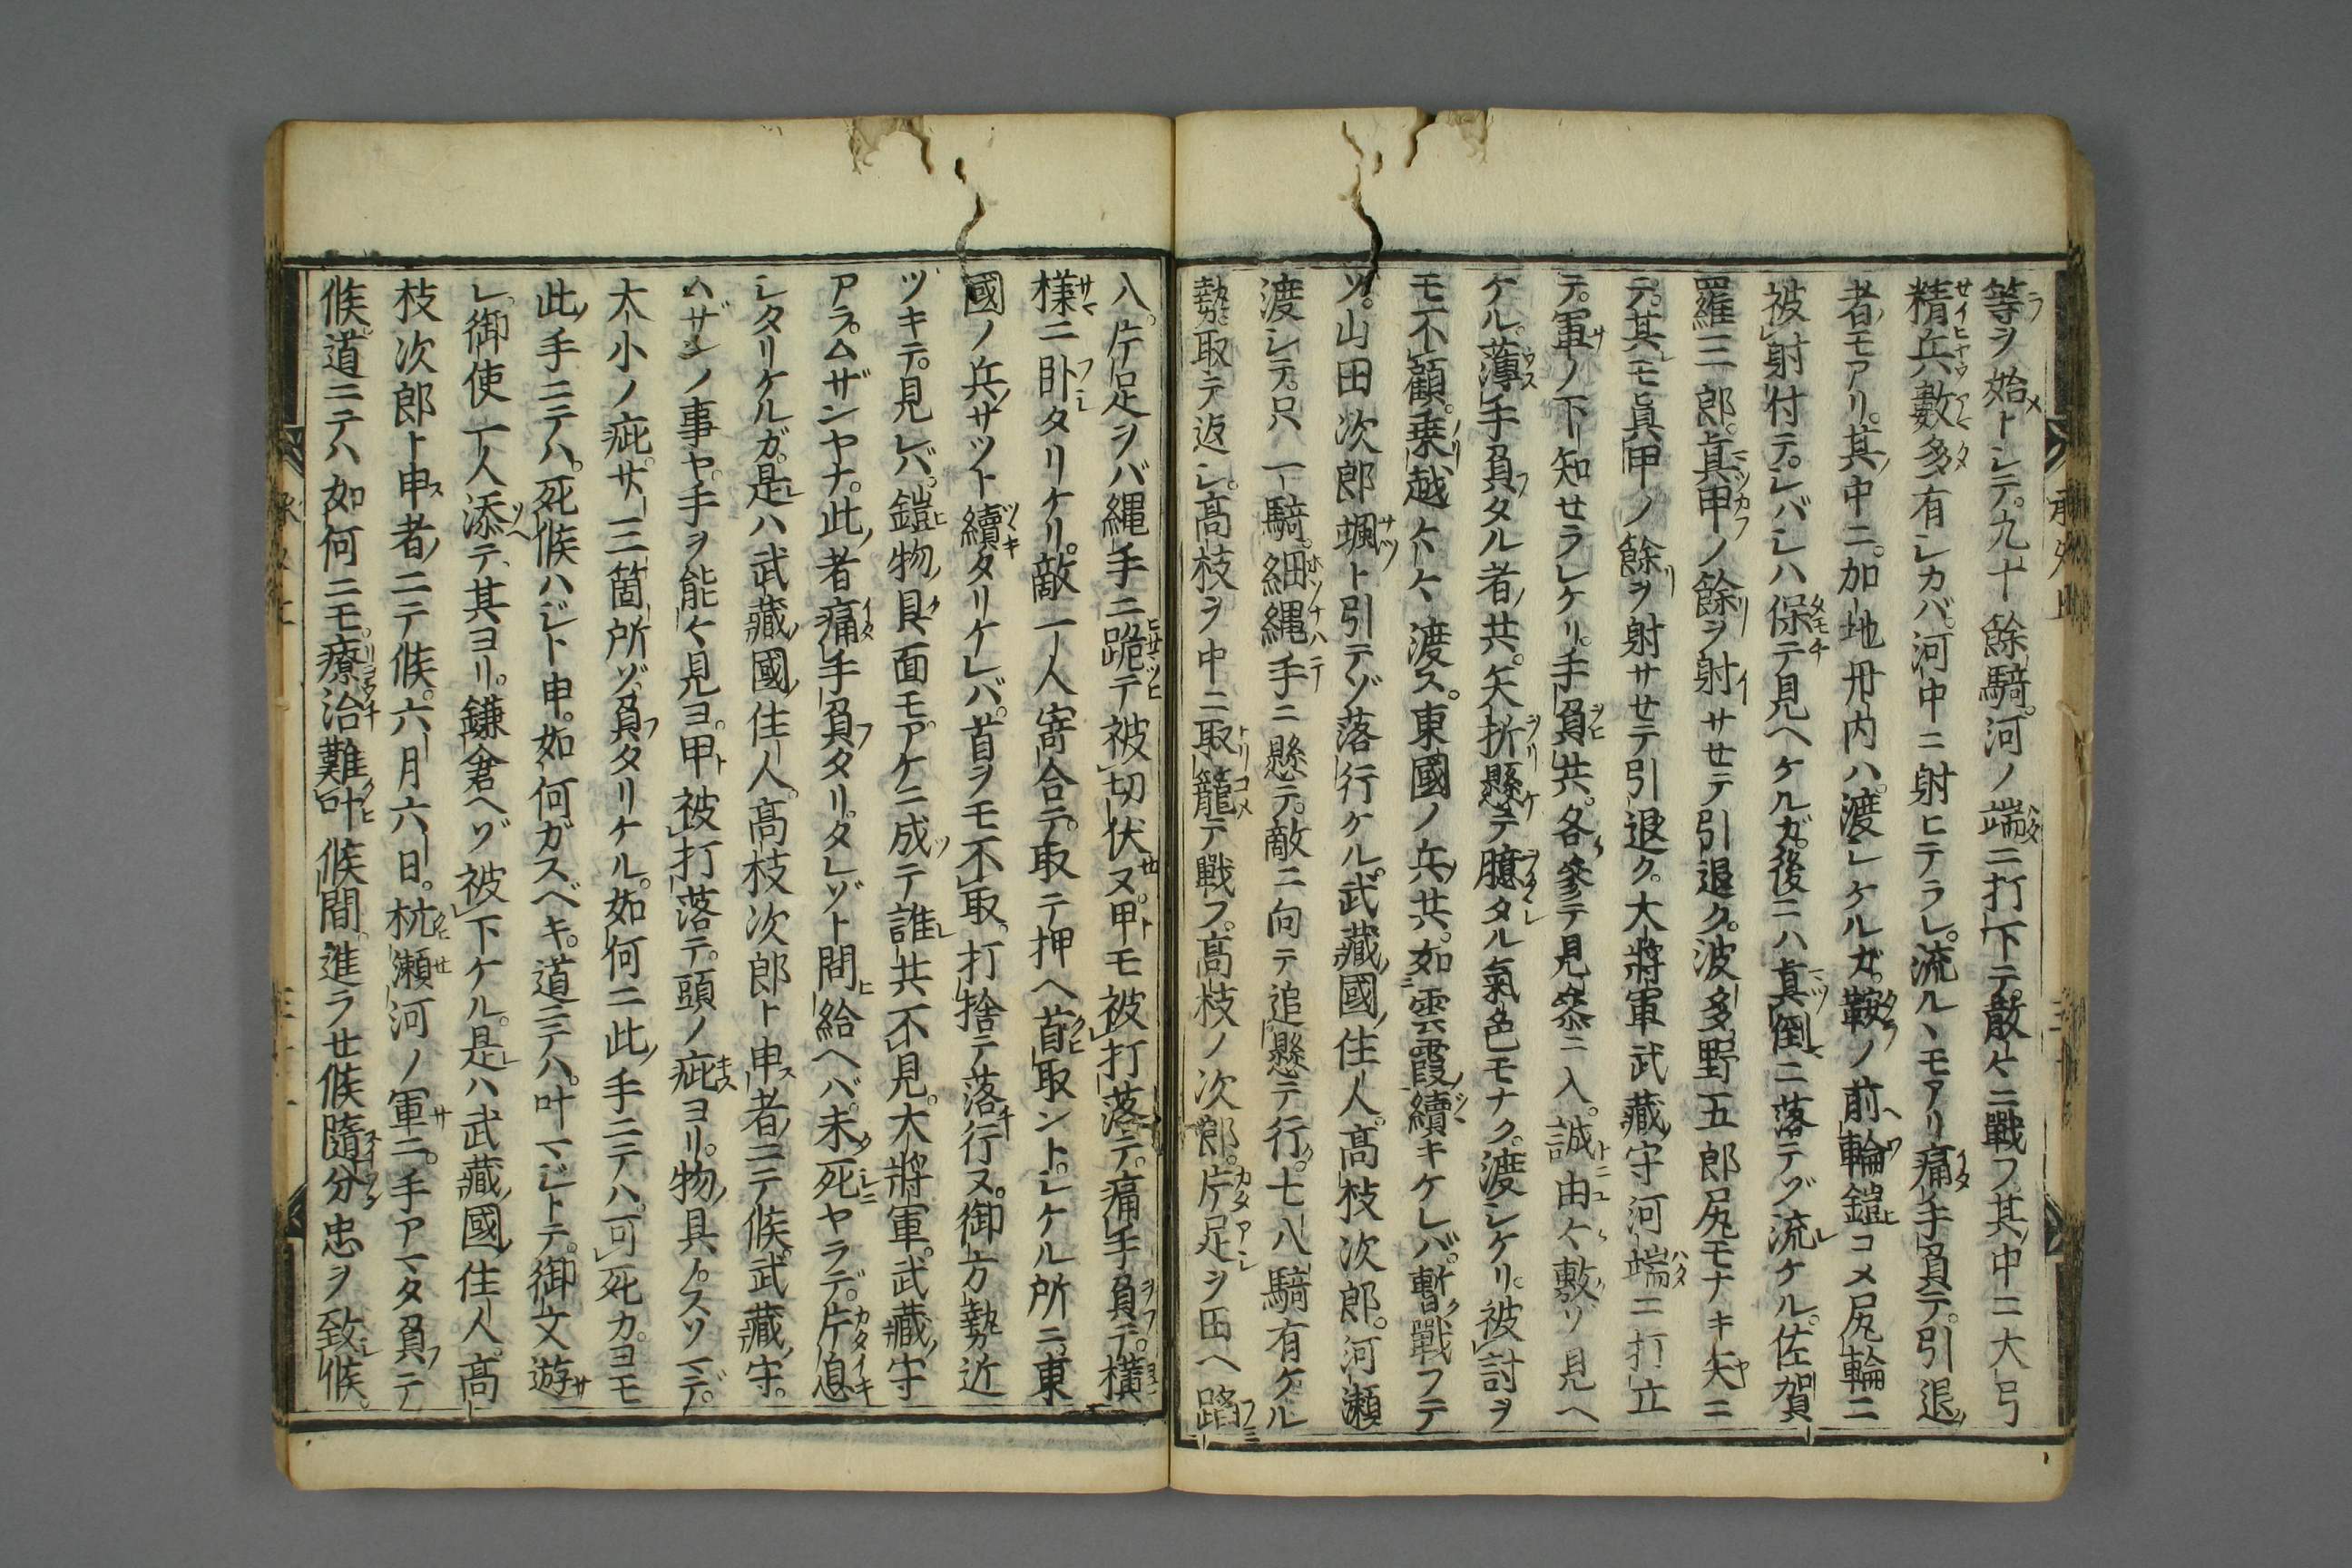 等ヲ始トシテ。九十餘騎。河ノ端ニ打下テ。散々ニ戰フ。其中ニ大弓
精兵數多有シカバ。河中ニ射ヒテラレ。流ルヽモアリ。痛手負テ。引退
者モアリ。其中ニ。加地丹内ハ。渡シケルガ。鞍ノ前輪鎧コメ尻輪ニ
被射付テ。シバシハ保テ見ヘケルガ。後ニハ真倒ニ落テゾ流ケル。佐賀
羅三郎。真甲ノ餘ヲ射サセテ引退ク。波多野五郎尻モナキ矢ニ
テ。其モ眞甲ノ餘ヲ射サセテ引退ク。大將軍武藏守河端ニ打立
テ。軍ノ下知せラレケリ。手負共。各參テ見參ニ入。誠由々敷ソ見ヘ
ケル。薄手負タル者共。矢折懸テ臆タル氣色モナク。渡シケリ。被討ヲ
モ不顧。乗越々々渡ス。東國ノ兵共。如雲霞續キケレバ。暫戰フテ
ツ。山田次郎颯ト引テゾ落行ケル。武藏國住人。高枝次郎。河瀬
渡シテ。只一騎。細縄手ニ懸テ。敵ニ向テ追懸テ行。七八騎有ケル
勢。取テ返シ。高枝ヲ中ニ取籠テ戰フ。高枝ノ次郎。片足ヲ田ヘ踏
入。片足ヲバ縄手ニ跪テ被切伏ヌ。甲モ被打落テ。痛手負テ。横
樣ニ卧タリケリ。敵一人寄合テ。取テ押ヘ首取ントシケル所ニ。東
國ノ兵サツト續タリケレバ。首ヲモ不取。打捨テ落行ヌ。御方勢近
ツキテ。見レバ。鎧物具面モアケニ成テ誰共不見。大將軍武藏守
アラムザンヤナ。此者痛手負タリ。タレゾト問給ヘバ。未死ヤラデ。片息
シタリケルガ。是ハ武藏國住人。高枝次郎ト申者ニテ候。武藏守。
ムザンノ事ヤ。手ヲ能々見ヨ。甲被打落テ。頭ノ疵ヨリ。物具ノスソマデ。
大小ノ疵。廿三箇所ゾ負タリケル。如何ニ此手ニテハ。可死カ。ヨモ
此手ニテハ。死候ハジト申。如何ガスベキ。道ニテハ。叶マジトテ。御文遊
レ。御使一人添テ。其ヨリ。鎌倉ヘゾ被下ケル。是ハ武藏國住人。高
枝次郎ト申者ニテ候。六月六日。杭瀬河ノ軍ニ。手アマタ負テ
候。道ニテハ如何ニモ。療治難叶候間。進ラせ候。隨分忠ヲ致候。